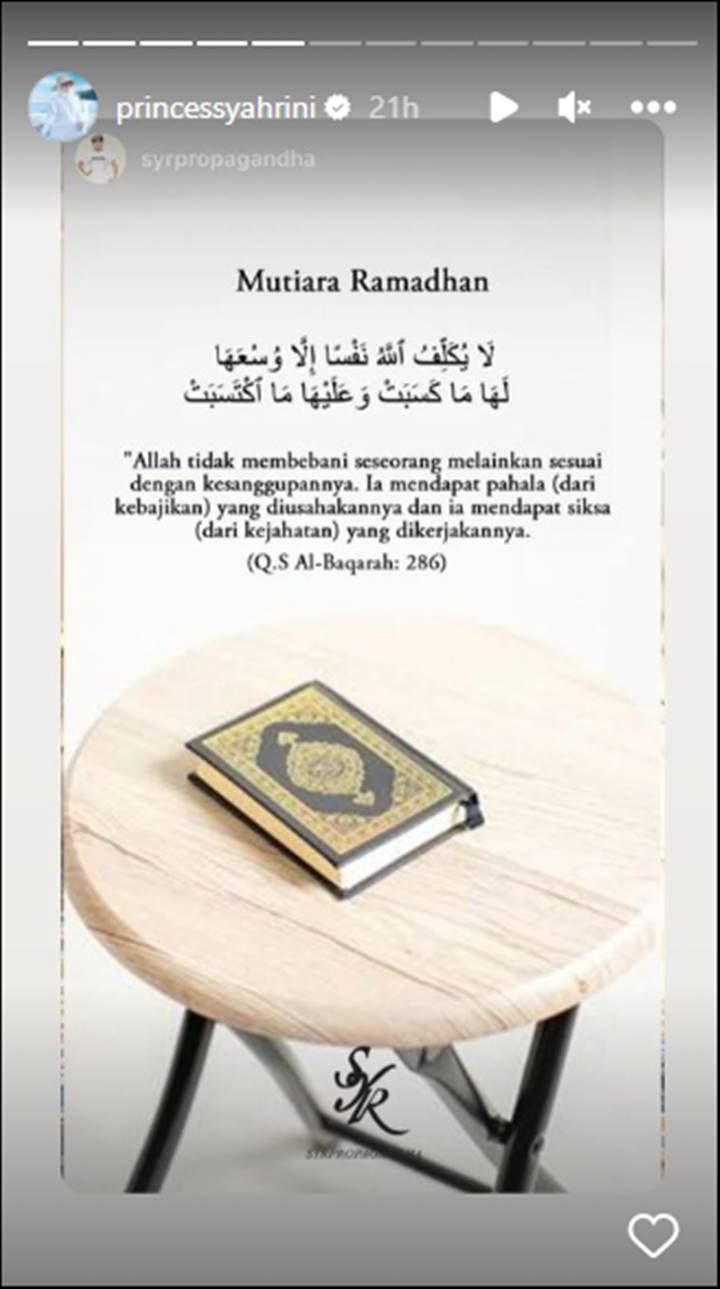 princessyahrini 21h
syrpropagandha
Mutiara Ramadhan
لَا يُكَلِّفُ ٱللَّهُ نَفْسًا إِلَّا وُسْعَهَا
لَهَا مَا كَسَبَتْ وَعَلَيْهَا مَا ٱكْتَسَبَتْ
"Allah tidak membebani seseorang melainkan sesuai
dengan kesanggupannya. Ia mendapat pahala (dari
kebajikan) yang diusahakannya dan ia mendapat siksa
(dari kejahatan) yang dikerjakannya.
(Q.S Al-Baqarah: 286)
SYR
SYRPROPAGANDHA